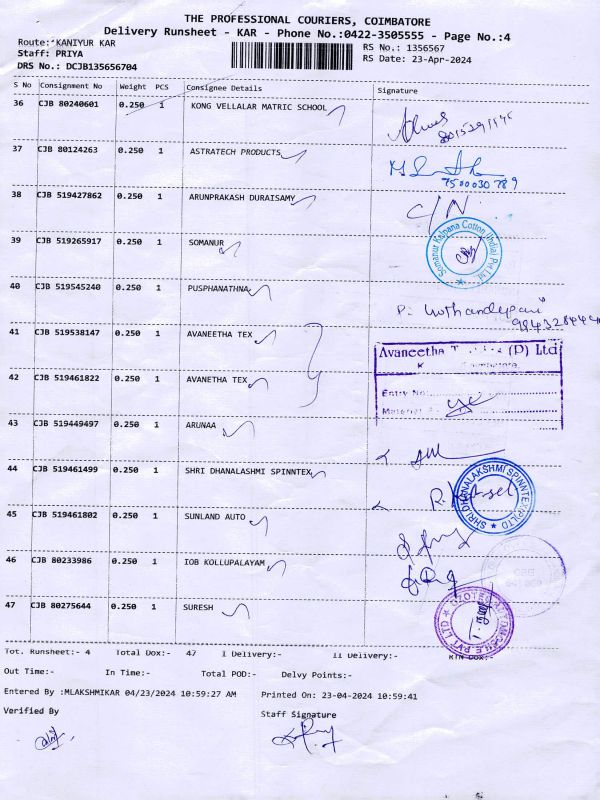 THE PROFESSIONAL COURIERS, COIMBATORE
Delivery Runsheet - KAR - Phone No.:0422-3505555 - Page No.:4
Route: KANIYUR KAR
RS No.: 1356567
Staff: PRIYA
RS Date: 23-Apr-2024
DRS No.: DCJB135656704
S No Consignment No Weight PCS Consignee Details Signature
36 CJB 80240601 0.250 1 KONG VELLALAR MATRIC SCHOOL
37 CJB 80124263 0.250 1 ASTRATECH PRODUCTS
7500030789
38 CJB 519427862 0.250 1 ARUNPRAKASH DURAISAMY C/N
39 CJB 519265917 0.250 1 SOMANUR Somanur Kalpana Cotton (India) Pvt Ltd
40 CJB 519545240 0.250 1 PUSPHANATHNA
41 CJB 519538147 0.250 1 AVANEETHA TEX
Avaneetha (P) Ltd
Entry No:
42 CJB 519461822 0.250 1 AVANETHA TEX
Material
43 CJB 519449497 0.250 1 ARUNAA
44 CJB 519461499 0.250 1 SHRI DHANALASHMI SPINNTEX SHRI DHANALAKSHMI SPINNTEX (P) LTD
45 CJB 519461802 0.250 1 SUNLAND AUTO
46 CJB 80233986 0.250 1 IOB KOLLUPALAYAM
47 CJB 80275644 0.250 1 SURESH PVT LTD
Tot. Runsheet:- 4 Total Dox:- 47 I Delivery:- II Delivery:- RTN Dox:-
Out Time:- In Time:- Total POD:- Delvy Points:-
Entered By :MLAKSHMIKAR 04/23/2024 10:59:27 AM Printed On: 23-04-2024 10:59:41
Verified By Staff Signature